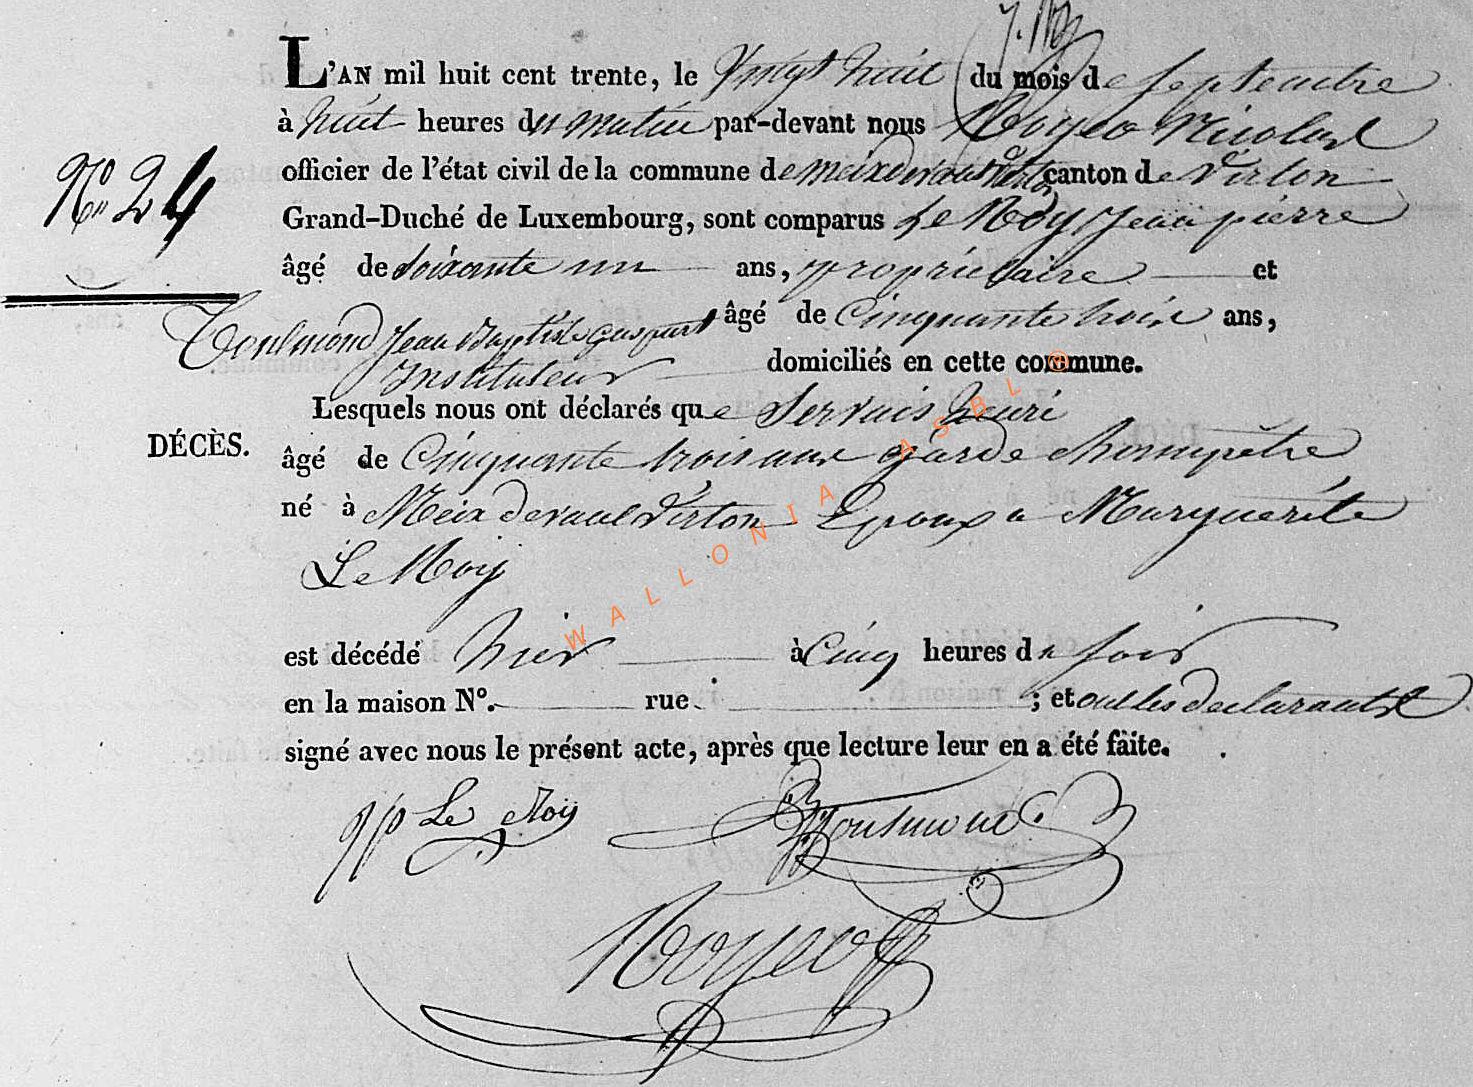 L'AN mil huit cent trente, le Vingt huit du mois de Septembre
à huit heures du matin par-devant nous Noyeo Nicolas
officier de l'état civil de la commune de meix devaut Virton canton de Virton
N° 24
Grand-Duché de Luxembourg, sont comparus Le Roy Jean pierre
âgé de Soixante un ans, propriétaire et
Toulmond Jean Baptiste Gaspart âgé de Cinquante trois ans,
Instituteur domiciliés en cette commune.
Lesquels nous ont déclarés que Servais henri
DÉCÈS.
âgé de Cinquante trois ans garde Champêtre
né à Meix devaut Virton Epoux a Marguerite
Le Roy
est décédé hier à Cinq heures du soir
en la maison N°. rue ; et ont les declarants
signé avec nous le présent acte, après que lecture leur en a été faite.
jp Le Roy Toulmond
Noyeo
WALLONIA ASBL ®